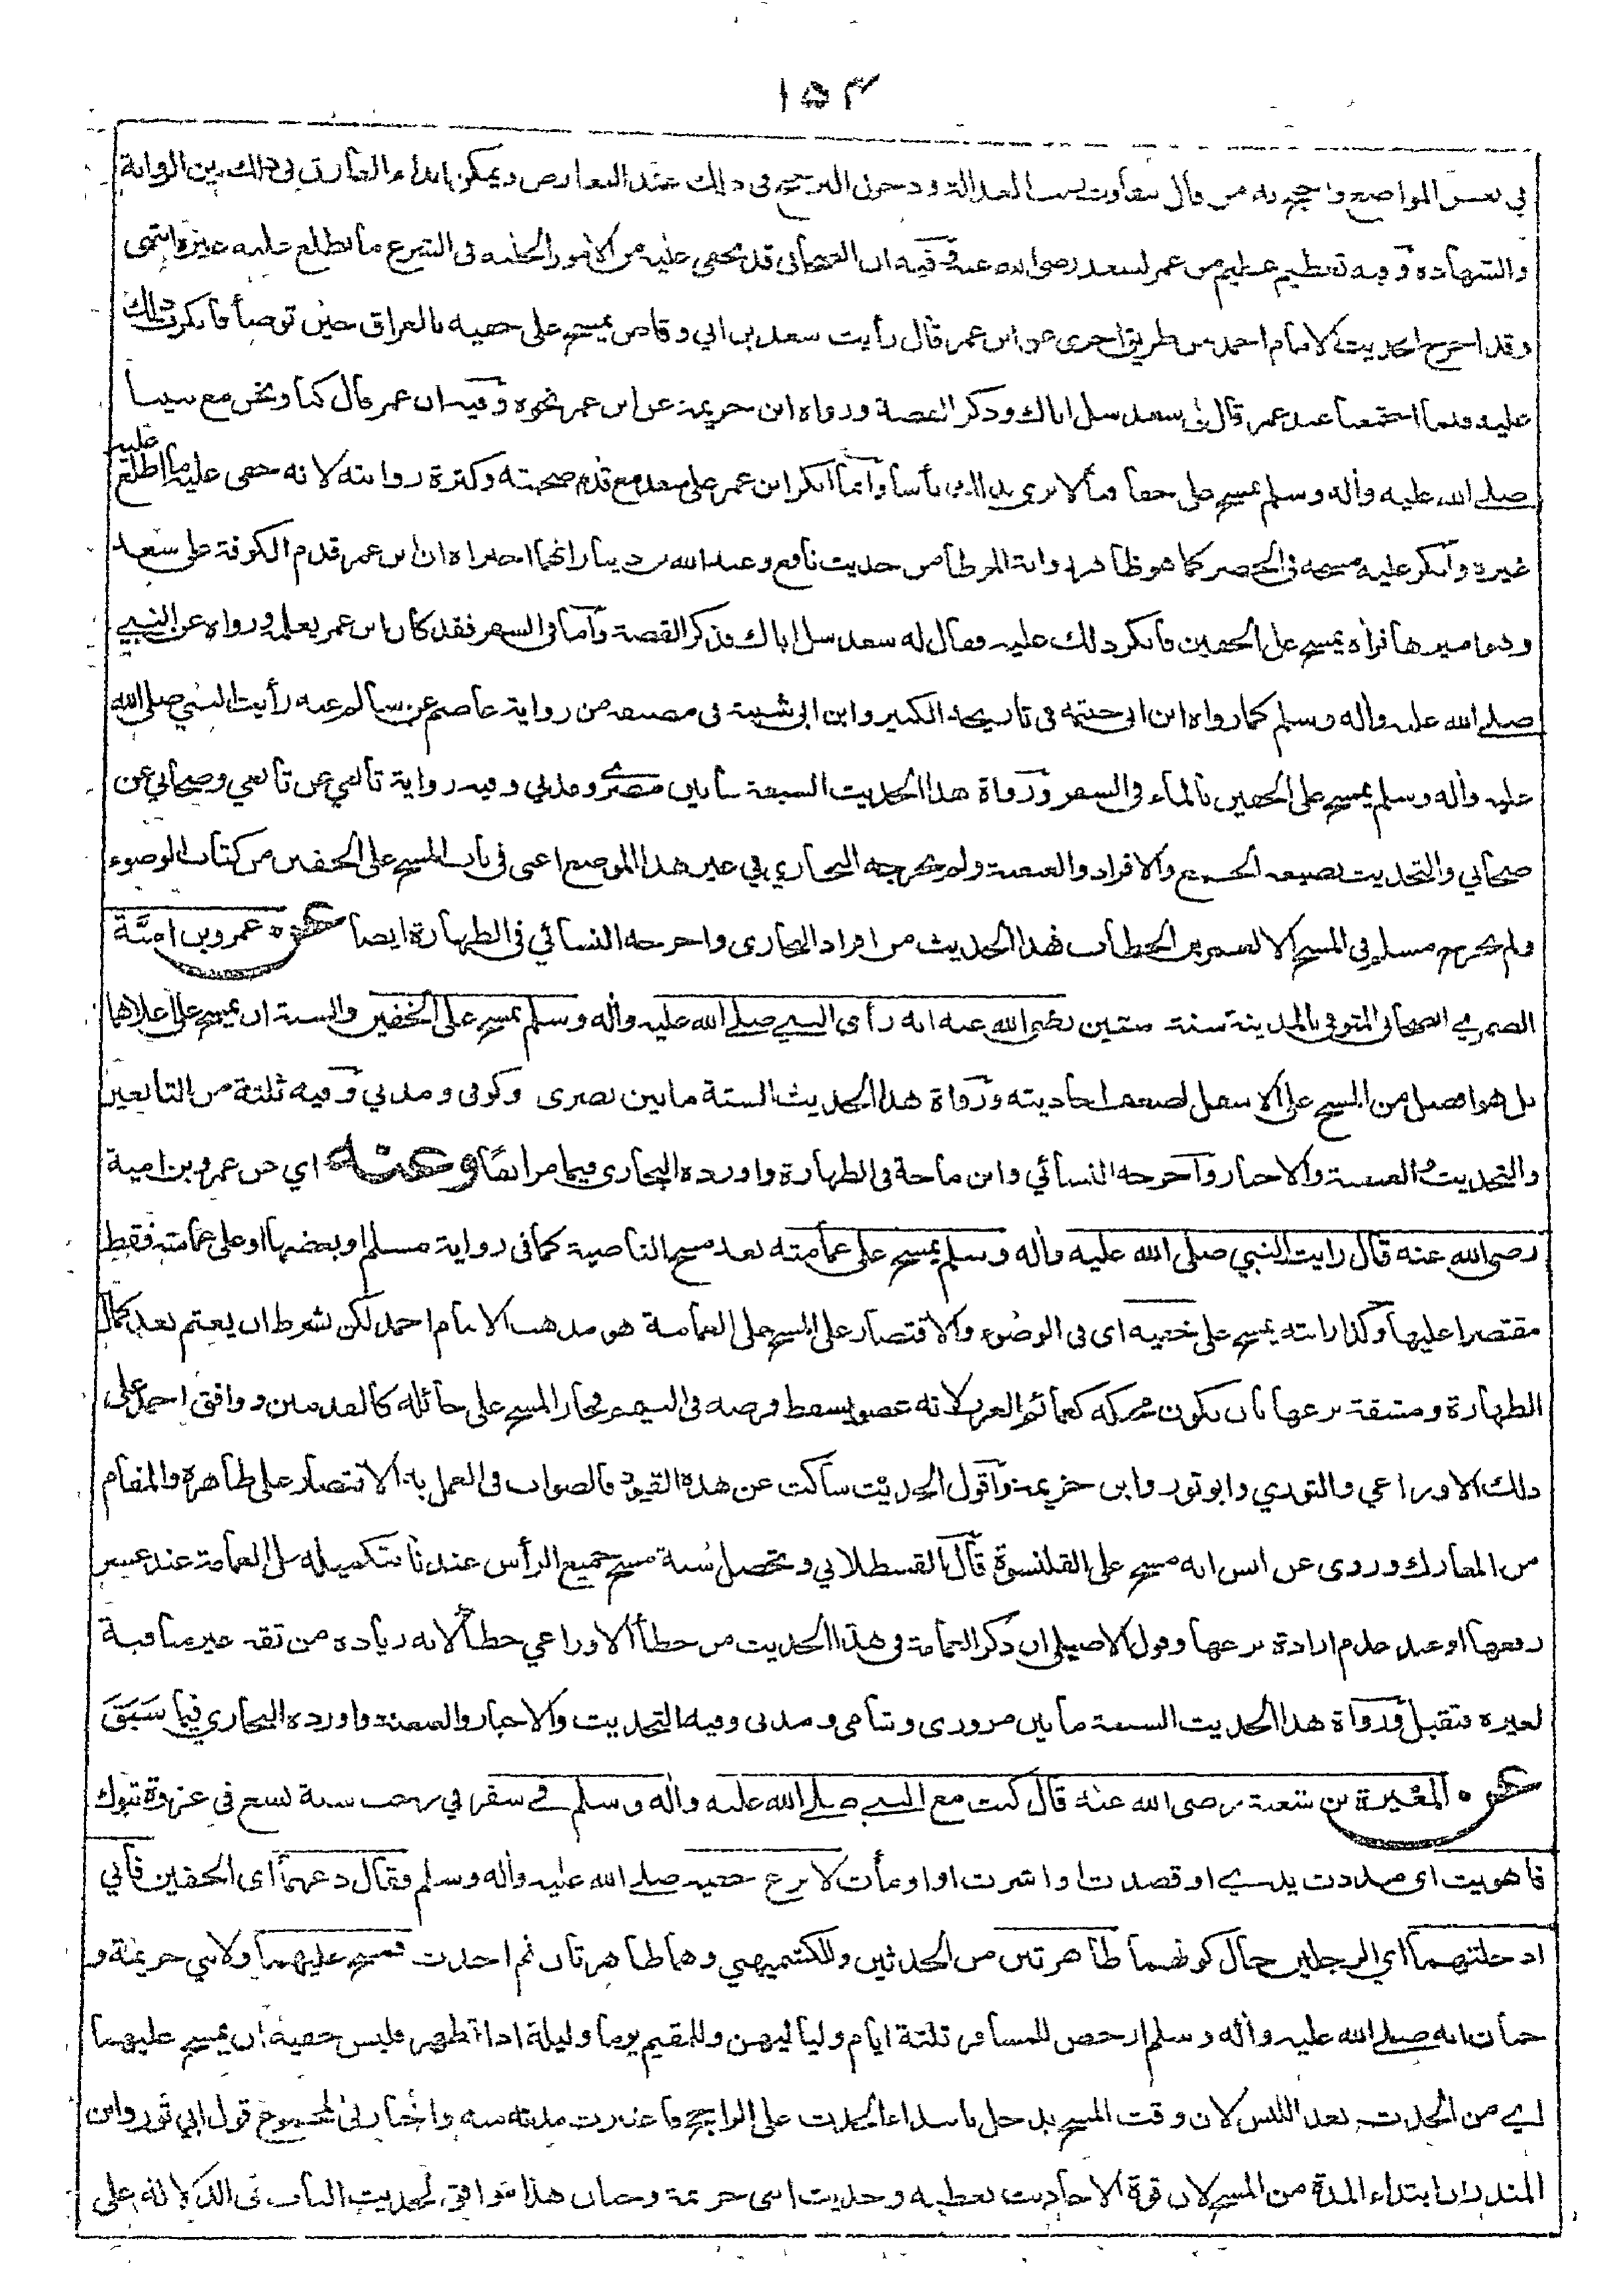 ١٥٣
في بعض المواضع واحتج به من قال بتفاوت رتب العدالة ودخول الترجيح في ذلك عند التعارض ويمكن ابداء الفارق في ذلك بين الرواية
والشهادة وفيه تعظيم عظيم من عمر لسعد رضي الله عنه وفيه ان الصحابي قد يخفى عليه من الامور الجلية في الشرع ما يطلع عليه غيره انتهى
وقد اخرج الحديث الامام احمد من طريق اخرى عن ابن عمر قال رأيت سعد بن ابي وقاص يمسح على خفيه بالعراق حين توضأ فانكرت ذلك
عليه فلما اجتمعنا عند عمر قال لي سعد سل اباك وذكر القصة ورواه ابن خزيمة عن ابن عمر نحوه وفيه ان عمر قال كنا ونحن مع نبينا
صلى الله عليه وأله وسلم نمسح على خفافنا لا نرى بذلك بأسا وانما انكر ابن عمر على سعد مع قدم صحبته وكثرة روايته لانه خفي عليه ما اطلع عليه
غيره وانكر عليه مسحه في الحضر كما هو ظاهر رواية الموطأ من حديث نافع وعبد الله بن دينار انهما اخبراه ان ابن عمر قدم الكوفة على سعد
وهو اميرها فرأه يمسح على الخفين فانكر ذلك عليه فقال له سعد سل اباك فذكر القصة وأما في السفر فقد كان ابن عمر يعلمه ورواه عن النبي
صلى الله عليه وأله وسلم كما رواه ابن ابي خيثمة في تاريخه الكبير وابن ابي شيبة في مصنفه من رواية عاصم عن سالم عنه رأيت النبي صلى الله
عليه وأله وسلم يمسح على الخفين بالماء في السفر ورواة هذا الحديث السبعة ما بين مصري ومدني وفيه رواية تابعي عن تابعي وصحابي عن
صحابي والتحديث بصيغة الجمع والافراد والعنعنة ولم يخرجه البخاري في غير هذا الموضع اعني في باب المسح على الخفين من كتاب الوضوء
ولم يخرج مسلم في المسح الا لعمر بن الخطاب فهذا الحديث من افراد البخاري واخرجه النسائي في الطهارة ايضا عن عمرو بن امية
الضمري الصحابي المتوفى بالمدينة سنة ستين رضي الله عنه انه رأى النبي صلى الله عليه وأله وسلم يمسح على الخفين والسنة ان يمسح على اعلاهما
بل هو افضل من المسح على الاسفل لضعف احاديثه ورواة هذا الحديث الستة ما بين بصري وكوفي ومدني وفيه ثلثة من التابعين
والتحديث والعنعنة والاخبار وأخرجه النسائي وابن ماجة في الطهارة واورده البخاري فيما مر ايضا وعنه اي عن عمرو بن امية
رضي الله عنه قال رايت النبي صلى الله عليه وأله وسلم يمسح على عمامته بعد مسح الناصية كما في رواية مسلم او بعضها او على عمامته فقط
مقتصرا عليها وكذا رايته يمسح على خفيه اي في الوضوء والاقتصار على المسح على العمامة هو مذهب الامام احمد لكن بشرط ان يعتم بعد كمال
الطهارة ومشقة نزعها بان يكون محنكة كعمائم العرب لانه عضو يسقط فرضه في التيمم فجاز المسح على حائله كالقدمين ووافق احمد على
ذلك الاوزاعي والثوري وابو ثور وابن خزيمة وأقول الحديث ساكت عن هذه القيود فالصواب في العمل به الاقتصار على ظاهره والمقام
من المعارك وروى عن انس انه مسح على القلنسوة قال القسطلاني وتحصل سنة مسح جميع الرأس عندنا بتكميله على العمامة عند عسر
رفعها او عند عدم ارادة نزعها وقول الاصيلي ان ذكر العمامة في هذا الحديث من خطأ الاوزاعي خطأ لانه زيادة من ثقة غير منافية
لغيره فتقبل ورواة هذا الحديث السبعة ما بين مروزي وشامي ومدني وفيه التحديث والاخبار والعنعنة واورده البخاري فيما سبق
عن المغيرة بن شعبة رضي الله عنه قال كنت مع النبي صلى الله عليه وأله وسلم في سفر في رجب سنة تسع في غزوة تبوك
فاهويت اي مددت يدي او قصدت او اشرت او اومأت لانزع خفيه صلى الله عليه وأله وسلم فقال دعهما اي الخفين فاني
ادخلتهما اي الرجلين حال كونهما طاهرتين من الحدثين وللكشميهني وهما طاهرتان ثم احدث فمسح عليهما ولابني خزيمة و
حبان انه صلى الله عليه وأله وسلم ارخص للمسافر ثلثة ايام ولياليهن وللمقيم يوما وليلة اذا تطهر فلبس خفيه ان يمسح عليهما
اي من الحدث بعد اللبس لان وقت المسح يدخل بابتداء الحدث على الراجح فاعتبرت مدته منه واختار في المجموع قول ابي ثور وابن
المنذر ان ابتداء المدة من المسح لان قوة الاحاديث تعطيه وحديث ابني خزيمة وحبان هذا موافق لحديث الباب في الدلالة على